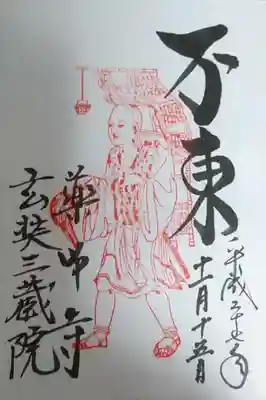 不東
平成
十一月十五日
薬師寺
玄奘三蔵院